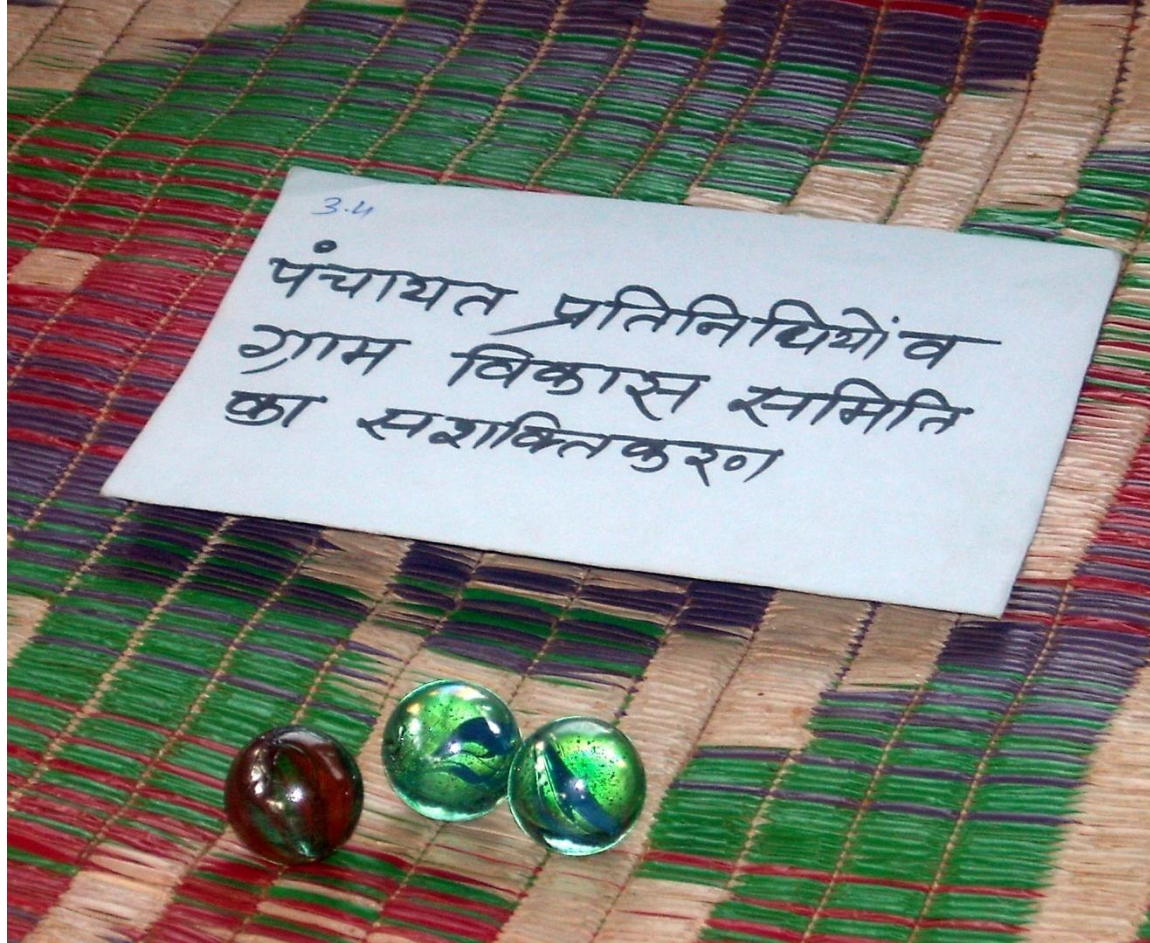 3.4
पंचायत प्रतिनिधियों व
ग्राम विकास समिति
का सशक्तिकरण